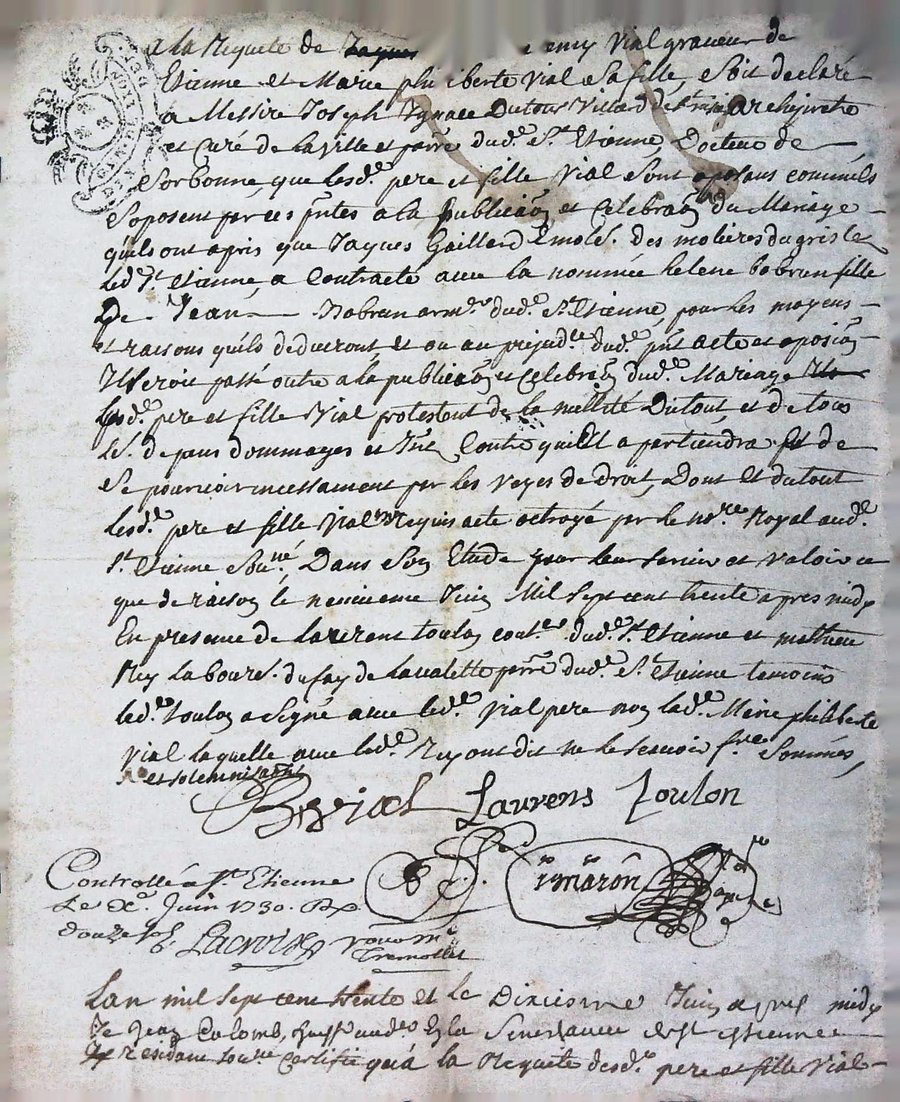 a la Requete de Jaques Remy Vial graveur de
Etienne et Marie philiberte Vial sa fille, soit declaré
a Messire Joseph Ygnace Dutour Villard Archiprebtre
et Curé de la ville et parre dud.e St Etienne, Docteur de
Sorbonne, que lesd.e pere et fille Vial sont oposans comme ils
s'oposent par ces pntes a la publicaon et Celebraon du Mariage
quils ont apris que Jaques Gaillard Emole.r des molieres dugris
led.t St Etienne, a Contracté avec la nommée helene bobrun fille
De Jean Bobrun arm.er dud.e St Etienne, pour les moyens
et raisons quils deduiront et ou au prejud.ce dud.e pnt acte et oposion
Il seroit passé outre a la publicaon et Celebraon dud.e Mariage
lesd.e pere et fille Vial protestent de la nullité Du tout et de tous
depens dommages et Int Contre qui Il apartiendra et de
se pourvoir incessament par les voyes de droit, Dont et du tout
lesd.e pere et fille Vial requis acte octroyé par le no.re Royal aud.e
St Etienne Sou.né Dans son Etude pour leur servir et valoir ce
que de raison le neuvieme Juin Mil sept cent trente apres midy
En presence de Laurens toulon cout.r dud.e St Etienne et mathieu
Rey laboure.r du fay de Lavalette parre dud.e St Etienne temoins
led.e Toulon a signé avec led.e Vial pere non lad.e Marie philiberte
Vial laquelle avec led.e Rey ont dit ne le scavoir f.re Sommés,
B Vial Laurens Toulon
Controllé a St Etienne
Le Xe Juin 1730. R
douze sols Lacroix
Tremollet
Lan mil sept cent trente et le Dixieme Juin apres midy
Je Jean Colomb, En la Senechaucé de St Estienne
Y residant sou.né Certifie qu'a la Requete desd.e pere et fille Vial